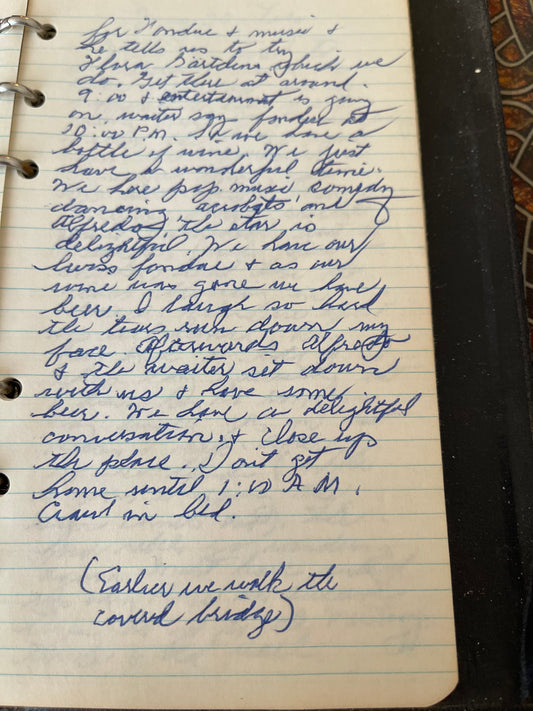 for Fondue & music &
he tells us to try
Flora Gartdens, which we
do. Get there at around
9:00 & entertainment is going
on, waiter says fondue at
10:00 P.M. So we have a
bottle of wine. We just
have a wonderful time.
We have pop music comedy
dancing acrobats and
Alfredo, the star is
delightful. We have our
Swiss fondue & as our
wine was gone we have
beer. I laugh so hard
the tears run down my
face. Afterwards Alfredo
& the waiter set down
with us & have some
beer. We have a delightful
conversation, & close up
the place. Don't get
home until 1:10 A.M.
Crawl in bed.
(Earlier we walk the
covered bridge)